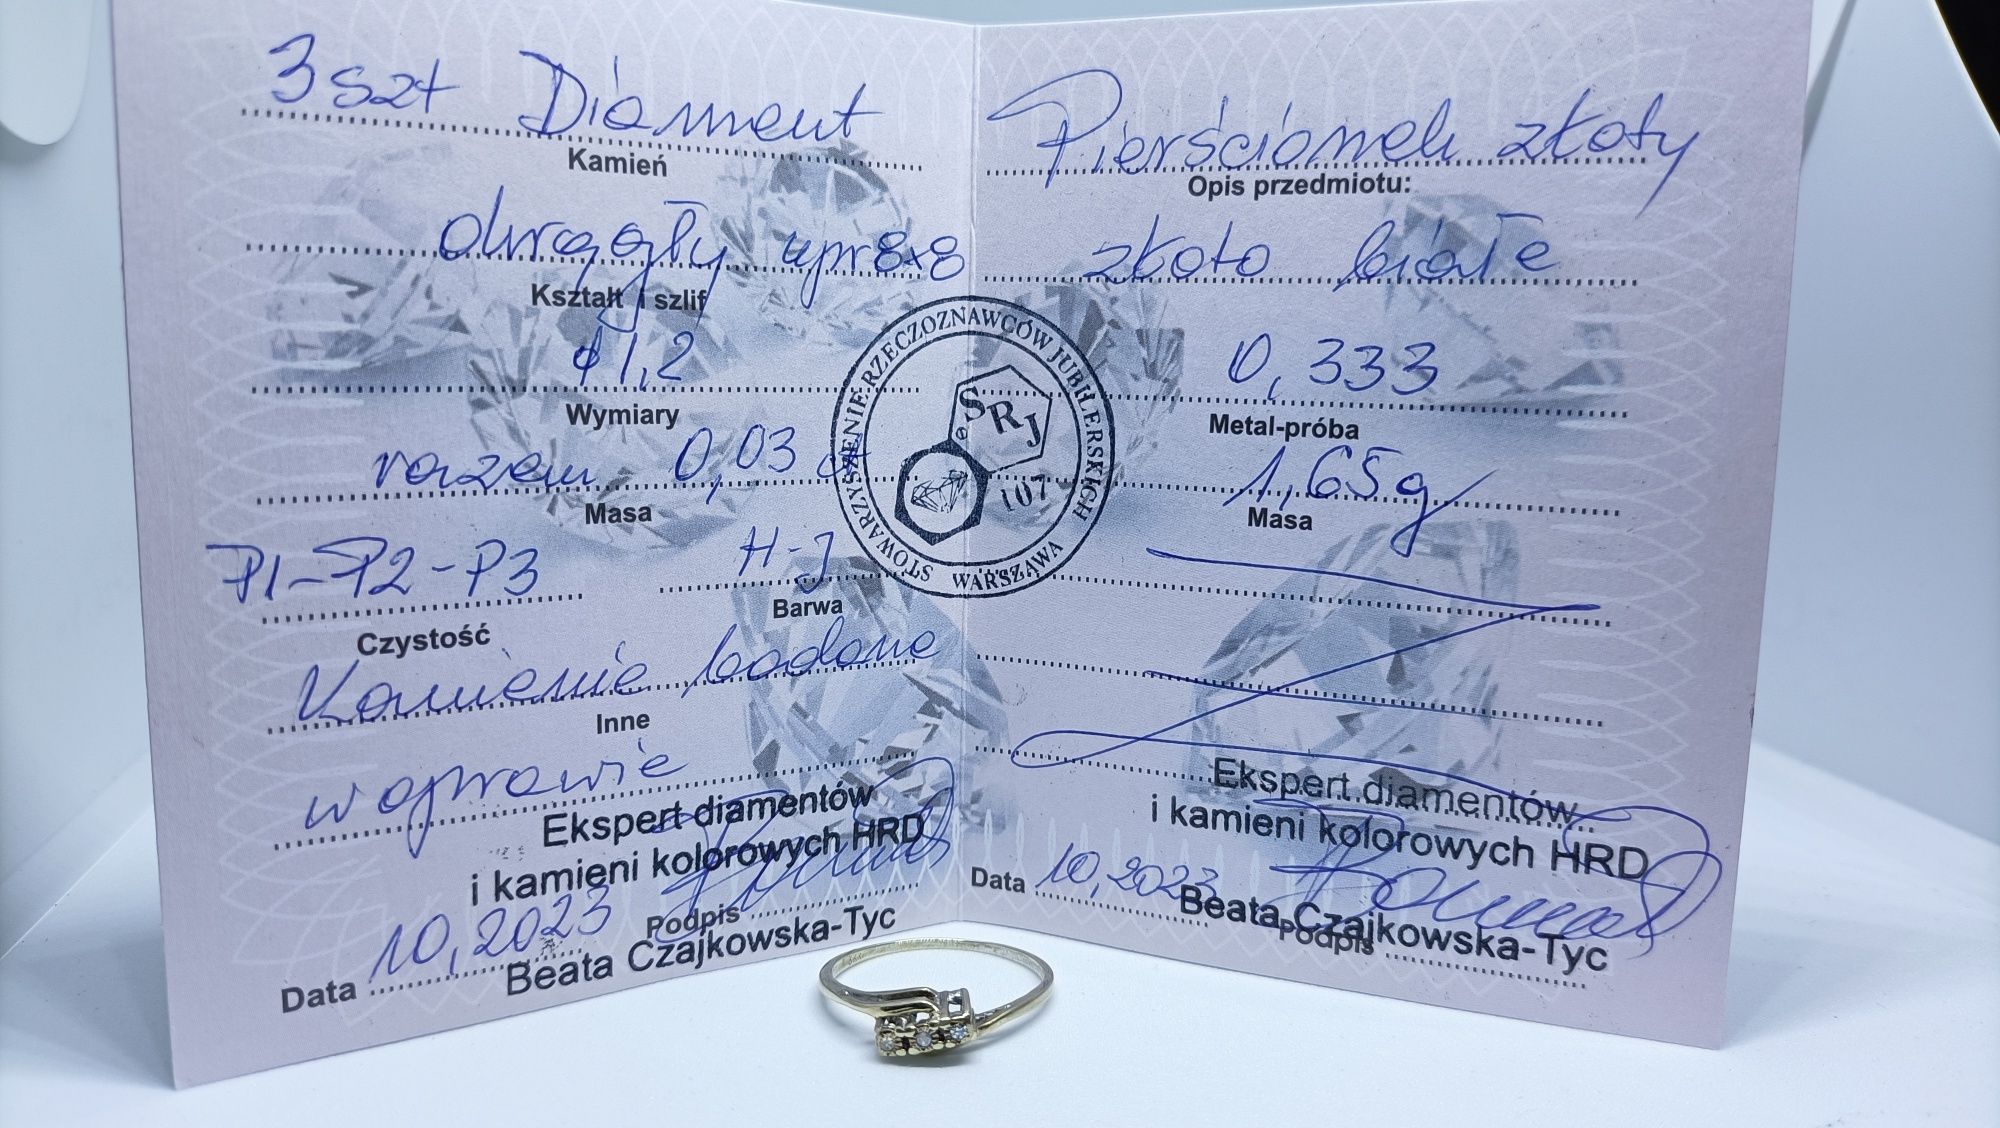 3 szt Diament
Kamień
okrągły upr 8x8
Kształt i szlif
ϕ1,2
Wymiary
razem 0,03 ct
Masa
P1-P2-P3 H-J
Czystość Barwa
Kamienie badano
Inne
w oprawie
Ekspert diamentów
i kamieni kolorowych HRD
Data 10,2023 Podpis
Beata Czajkowska-Tyc
STOWARZYSZENIE RZECZOZNAWCÓW JUBILERSKICH
WARSZAWA
SRJ
107
Pierścionek złoty
Opis przedmiotu:
złoto białe
0,333
Metal-próba
1,65g
Masa
Ekspert diamentów
i kamieni kolorowych HRD
Data 10,2023
Beata Czajkowska-Tyc
Podpis